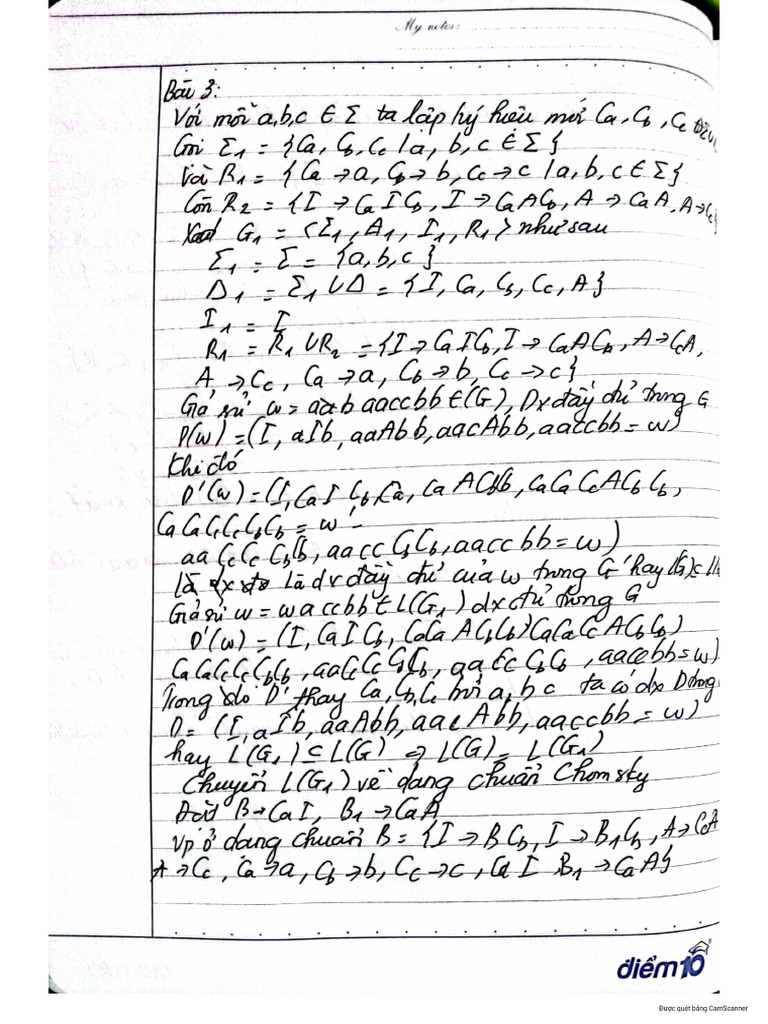 My notes:
Bài 3:
Với mỗi a,b,c ∈ Σ ta lập ký hiệu mới Ca, Cb, Cc
Gọi Σ1 = {Ca, Cb, Cc | a, b, c ∈ Σ}
Và R1 = {Ca → a, Cb → b, Cc → c | a, b, c ∈ Σ}
Còn R2 = {I → CaICb, I → CaACb, A → CaA, A → Cc}
G1 = <Σ1, Δ1, I1, R1> như sau
Σ1 = Σ = {a,b,c}
Δ1 = Σ1 ∪ Δ = {I, Ca, Cb, Cc, A}
I1 = I
R1 = R1 ∪ R2 = {I → CaICb, I → CaACb, A → CcA,
A → Cc, Ca → a, Cb → b, Cc → c}
Giả sử w = aabaaccbb ∈ (G), Dx đầy đủ trong G
D(w) = (I, aIb, aaAbb, aacAbb, aaccbb = w)
Khi đó
D'(w) = (I, CaICb, Ca, CaACbCb, CaCaCcACbCb,
CaCaCcCcCbCb = w
aaCcCcCbCb, aaccCbCb, aaccbb = w)
là dx đầy đủ của w trong G' hay L(G) ⊂
Giả sử w = waccbb ∈ L(G1) dx đủ trong G
D'(w) = (I, CaICb, CaCaACbCb, CaCaCcACbCb)
CaCaCcCcCbCb, aaCcCcCbCb, aaccCbCb, aaccbb = w)
Trong đó D' thay Ca, Cb, Cc bởi a, b, c ta có dx D trong
D = (I, aIb, aaAbb, aacAbb, aaccbb = w)
hay L(G1) ⊆ L(G) ⇒ L(G) = L(G1)
Chuyển L(G1) về dạng chuẩn Chomsky
Đặt B → CaI, B1 → CaA
Vp ở dạng chuẩn B = {I → BCb, I → B1Cb, A → CcA
A → Cc, Ca → a, Cb → b, Cc → c, CaI, B1 → CaA}
điểm10
Được quét bằng CamScanner